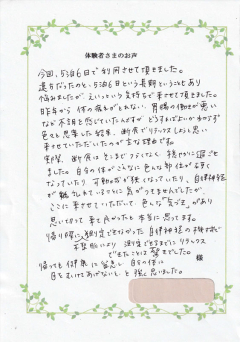 体験者さまのお声
今回、5泊6日で利用させて頂きました。
遠方だったのと、5泊6日という長期ということもあり
悩みましたが、えいっという気持ちで来させて頂きました。
昨年から体の痛みがとれない、胃腸の働きが悪い
など不調を感じていたんですが、どうすればよいかわからず
色々と思案した結果、断食でリラックスしようと思い
来させていただいたのが主な理由です。
実際、断食はそこまでつらくなく、穏やかに過ごせ
ました。自分の体がこんなに色んな部分が
なっていたり、可動域が狭くなっていたり、自律神経
が乱れているようだと気がつきませんでしたが、
ここに来させていただいて、色んな“気づき”があり
思い切って来て良かったと本当に思ってます。
帰り際に、測定できなかった自律神経の検査が
測定できるまでにリラックス
できたことは驚きでした。
帰っても 自分の体に
目をむけてあげないと、と強く思いました。
様